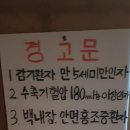 경고문
1 감기환자 만 5세미만인자
2 수축기혈압 180mmHg 이상인자
3 백내장. 안면홍조증환자